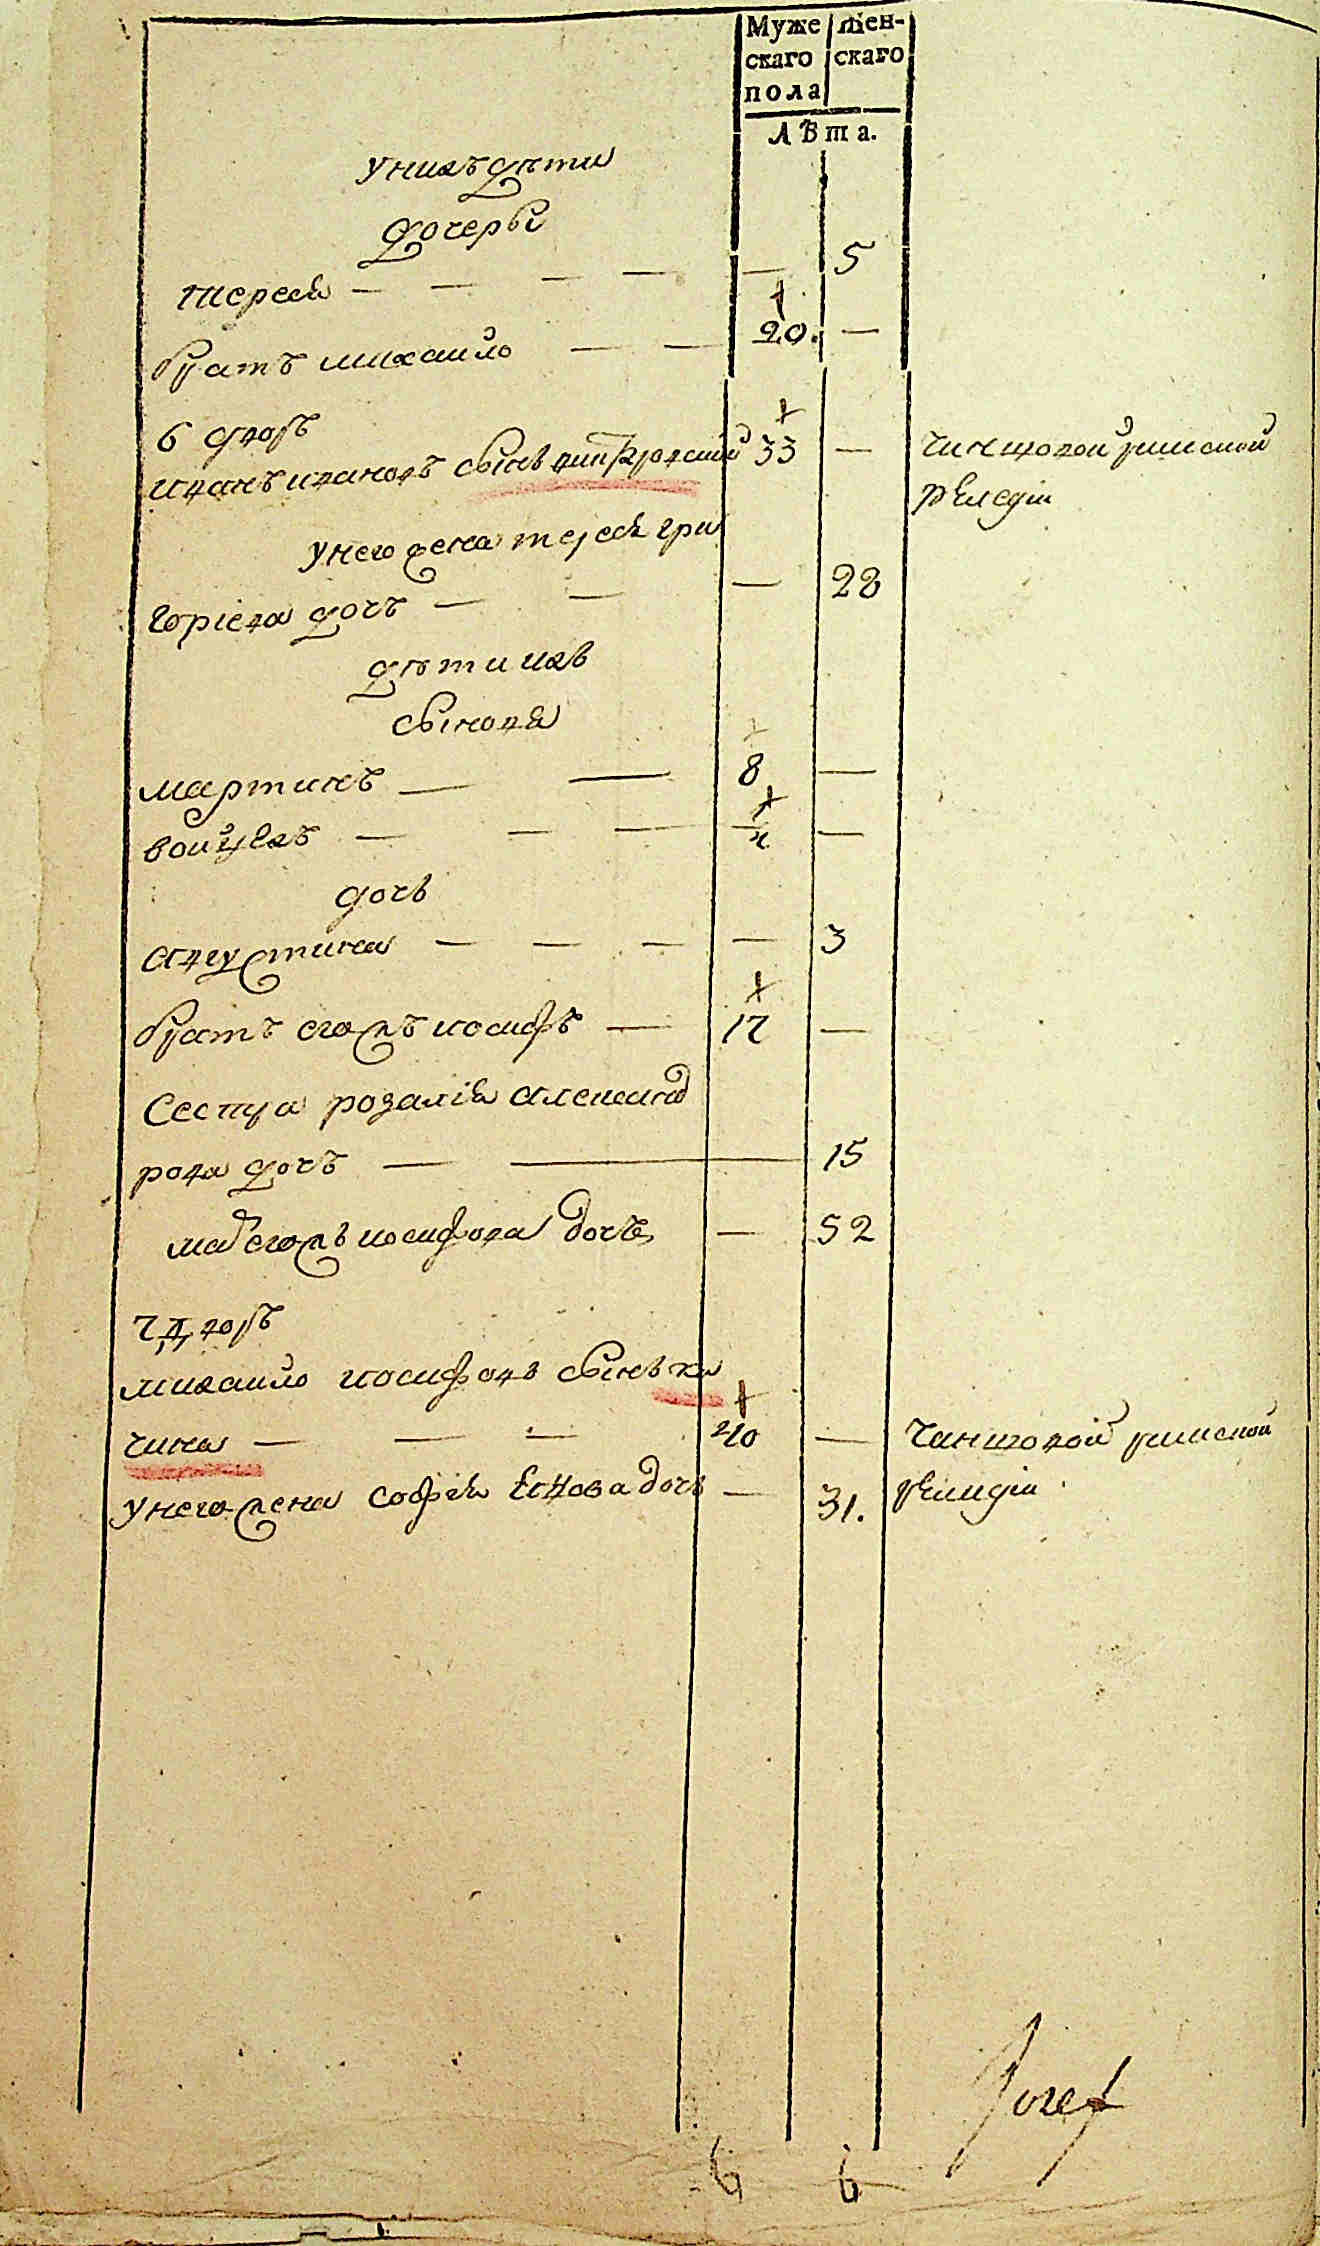 Муже скаго пола
жен- скаго
Лѣта.
у нихъ дѣти
дочеры
тересия — — — — — 5
братъ михаило — — 20. —
6 дворъ
иванъ ивановъ сынъ 33 — чиншовой римской
релегии
у него жена тереся гри
горіева дочь — — — 28
дѣти ихъ
сыновя
мартинъ — — 8 —
войцехъ — — — 4 —
дочь
августина — — — — 3
братъ его жъ иосифъ — 17 —
сестра розалія александ
рова дочь — — 15
мать его жъ иосифова дочь — 52
7 дворъ
михаило иосифовъ сынъ ка
чина — — — 40 — чиншовой римской
релидіи
у него жена софия Есцова дочь — 31.
6 6
Jozef